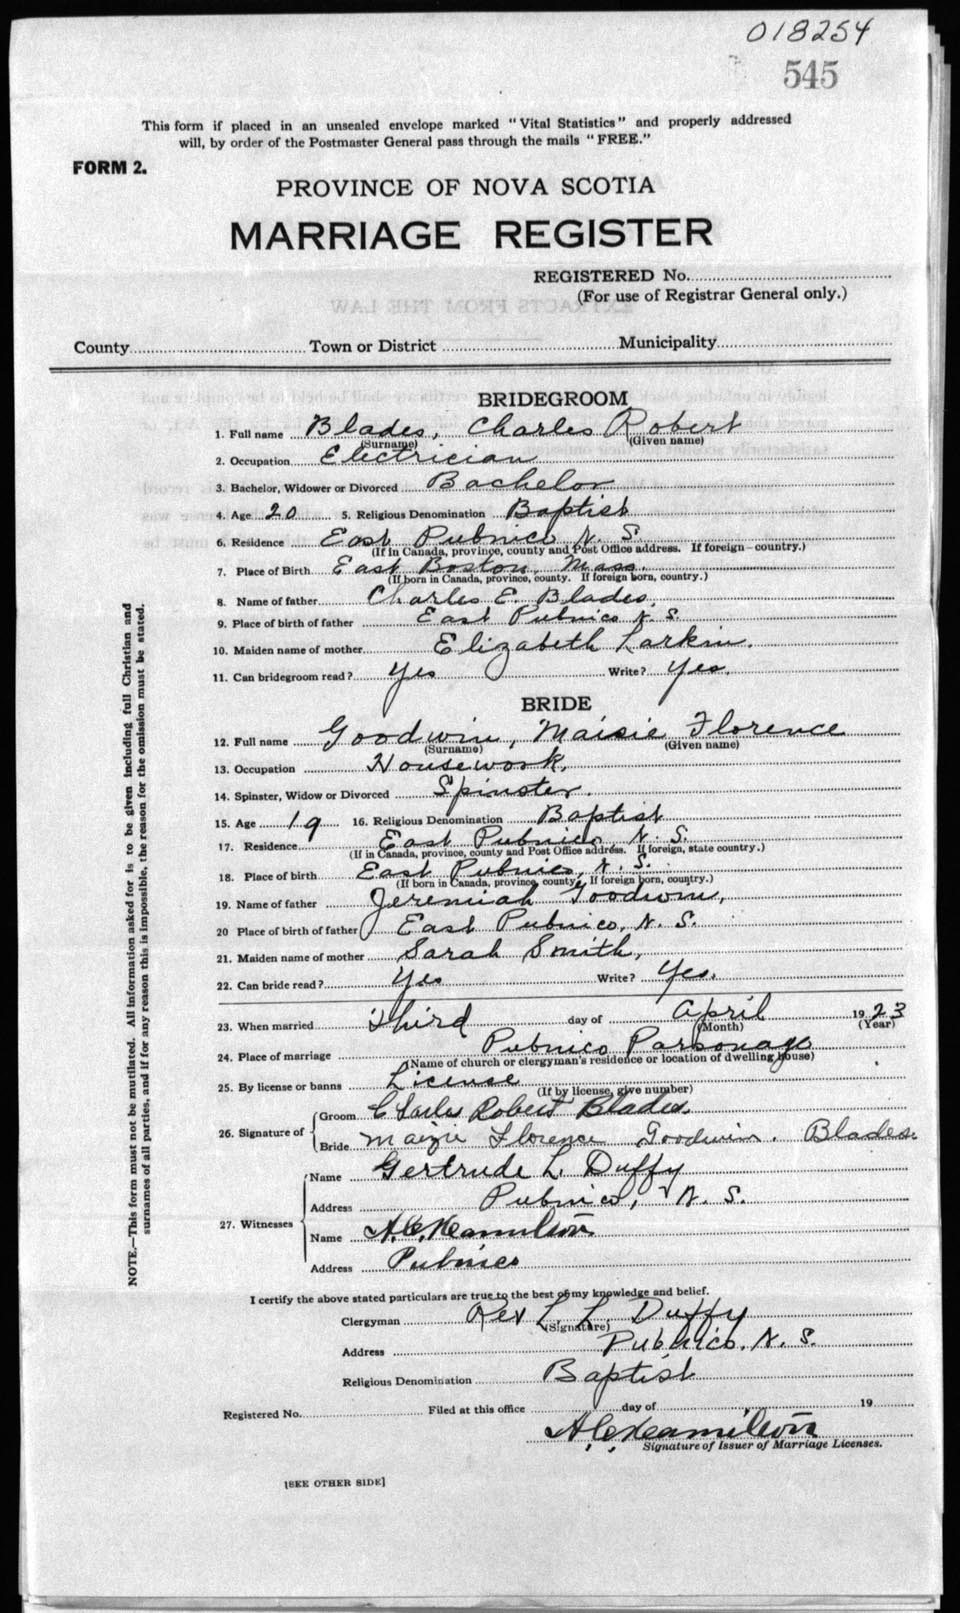 018254
545
This form if placed in an unsealed envelope marked "Vital Statistics" and properly addressed
will, by order of the Postmaster General pass through the mails "FREE."
FORM 2.
PROVINCE OF NOVA SCOTIA
MARRIAGE REGISTER
REGISTERED No.
(For use of Registrar General only.)
County Town or District Municipality
BRIDEGROOM
1. Full name Blades, Charles Robert
(Surname) (Given name)
2. Occupation Electrician
3. Bachelor, Widower or Divorced Bachelor
4. Age 20 5. Religious Denomination Baptist
6. Residence East Pubnico N. S.
(If in Canada, province, county and Post Office address. If foreign—country.)
7. Place of Birth East Boston, Mass.
(If born in Canada, province, county. If foreign born, country.)
8. Name of father Charles E. Blades.
9. Place of birth of father East Pubnico N. S.
10. Maiden name of mother Elizabeth Larkin.
11. Can bridegroom read? Yes Write? Yes.
BRIDE
12. Full name Goodwin, Maisie Florence
(Surname) (Given name)
13. Occupation Housework.
14. Spinster, Widow or Divorced Spinster.
15. Age 19 16. Religious Denomination Baptist
17. Residence East Pubnico, N. S.
(If in Canada, province, county and Post Office address. If foreign, state country.)
18. Place of birth East Pubnico, N. S.
(If born in Canada, province, county. If foreign born, country.)
19. Name of father Jeremiah Goodwin,
20 Place of birth of father East Pubnico, N. S.
21. Maiden name of mother Sarah Smith,
22. Can bride read? Yes Write? Yes.
23. When married Third day of April 1923
(Month) (Year)
24. Place of marriage Pubnico Parsonage
(Name of church or clergyman's residence or location of dwelling house)
25. By license or banns License
(If by license, give number)
26. Signature of
Groom Charles Robert Blades.
Bride Maizie Florence Goodwin. Blades.
27. Witnesses
Name Gertrude L. Duffy
Address Pubnico, N. S.
Name A.C. Hamilton
Address Pubnico
I certify the above stated particulars are true to the best of my knowledge and belief.
Clergyman Rev L. L. Duffy
(Signature)
Address Pubnico, N. S.
Religious Denomination Baptist
Registered No. Filed at this office day of 19
A.C. Hamilton
Signature of Issuer of Marriage Licenses.
[SEE OTHER SIDE]
NOTE.—This form must not be mutilated. All information asked for is to be given including full Christian and
surnames of all parties, and if for any reason this is impossible, the reason for the omission must be stated.